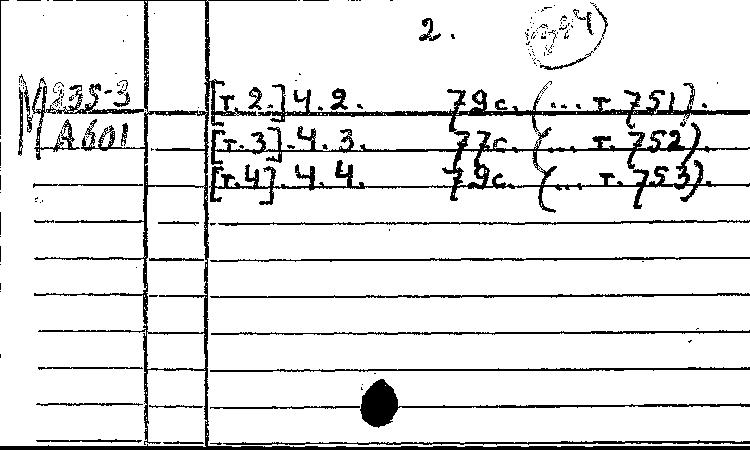 2.
М 235-3
А601
[т. 2.] Ч. 2. 79с. (... т. 751).
[т. 3]. Ч. 3. 77с. (... т. 752).
[т. 4]. Ч. 4. 79с. (... т. 753).